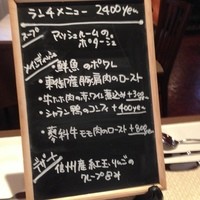 ランチメニュー 2400yen
スープ
マッシュルームの
ポタージュ
メインディッシュ
・鮮魚のポワレ
・東御産豚肩肉のロースト
・牛ホホ肉の赤ワイン煮込み+300
・シャラン鴨のコンフィ +400yen
・蓼科牛モモ肉のロースト +800
デザート
信州産紅玉りんごの
クレープ包み